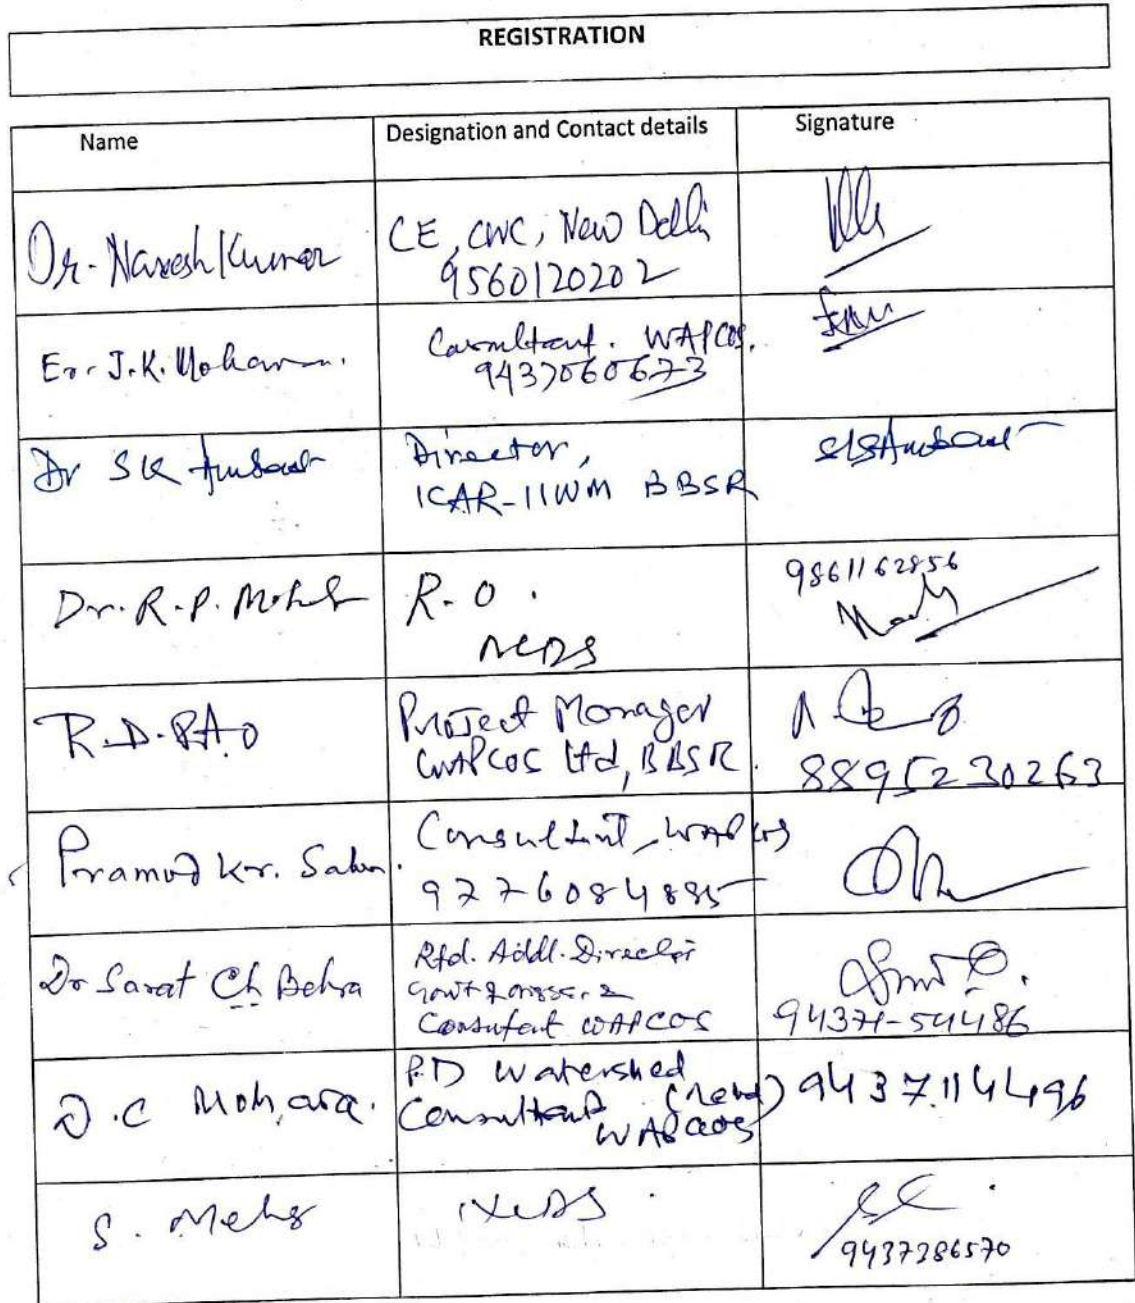 REGISTRATION
Name Designation and Contact details Signature
Dr. Naresh Kumar CE, CWC, New Delhi
9560120202
Er. J.K. Consultant. WAPCOS.
9437060673
Dr SK Ambast Director, SKAmbast
ICAR-IIWM BBSR
Dr. R.P. R.O. 9861162856
NCDS
R.D. RAO Project Manager
WAPCOS Ltd, BBSR. 8895230263
Pramod Kr. Sahu. Consultant, WAPCOS
9776084885
Dr Sarat Ch Behra Rtd. Addl. Director
Consultant WAPCOS 94371-54486
D.C P.D Watershed (Retd) 9437114496
Consultant WAPCOS
S. NCDS
9437386570